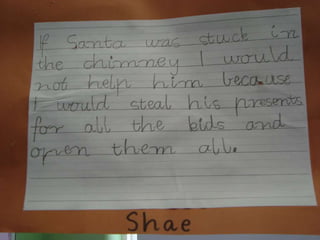 If Santa was stuck in
the chimney I would
not help him because
I would steal his presents
for all the bids and
open them all.
Shae